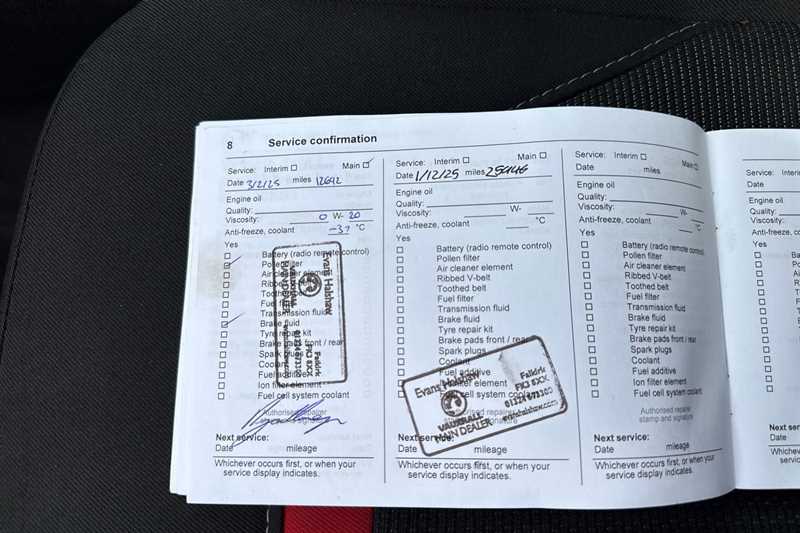 8 Service confirmation
Service: Interim □ Main ☑
Date 3/2/25 miles 12692
Engine oil
Quality:
Viscosity: 0 W- 20
Anti-freeze, coolant -37 °C
Yes
Battery (radio remote control)
Pollen filter
Air cleaner element
Ribbed V-belt
Toothed belt
Fuel filter
Transmission fluid
Brake fluid
Tyre repair kit
Brake pads front / rear
Spark plugs
Coolant
Fuel additive
Ion filter element
Fuel cell system coolant
Evans Halshaw
VAUXHALL
MAIN DEALER
Falkirk
FK2 8XX
Authorised repairer
Next service:
Date mileage
Whichever occurs first, or when your
service display indicates.
Service: Interim □ Main □
Date 1/12/25 miles
Engine oil
Quality:
Viscosity: W-
Anti-freeze, coolant °C
Yes
Battery (radio remote control)
Pollen filter
Air cleaner element
Ribbed V-belt
Toothed belt
Fuel filter
Transmission fluid
Brake fluid
Tyre repair kit
Brake pads front / rear
Spark plugs
Coolant
Fuel additive
element
cell system coolant
Evans Halshaw
VAUXHALL
MAIN DEALER
Falkirk
evanshalshaw.com
Next service:
Date mileage
Whichever occurs first, or when your
service display indicates.
Service: Interim □ Main □
Date miles
Engine oil
Quality:
Viscosity: W-
Anti-freeze, coolant °C
Yes
Battery (radio remote control)
Pollen filter
Air cleaner element
Ribbed V-belt
Toothed belt
Fuel filter
Transmission fluid
Brake fluid
Tyre repair kit
Brake pads front / rear
Spark plugs
Coolant
Fuel additive
Ion filter element
Fuel cell system coolant
Authorised repairer
stamp and signature
Next service:
Date mileage
Whichever occurs first, or when your
service display indicates.
Service:
Date
Engine oil
Quality:
Viscosity:
Anti-freeze
Yes
Next service
Date
Whichever
service